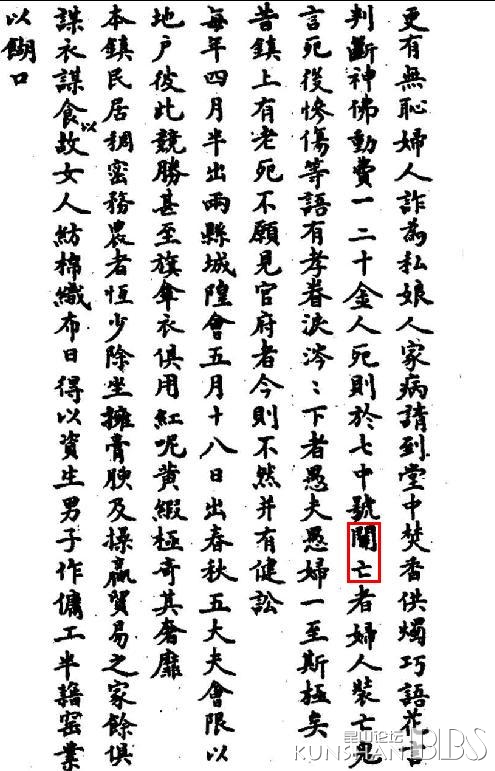 更有無恥婦人詐為私娘人家病請到堂中焚香供燭巧語花言
判斷神佛動費一二十金人死則於七中號關亡者婦人裝亡鬼
言死後慘傷等語有孝眷淚涔:下者愚夫愚婦一至斯極矣
昔鎮上有老死不願見官府者今則不然并有健訟
每年四月半出兩縣城隍會五月十八日出春秋五大夫會限以
地户彼此競勝甚至旗傘衣俱用紅呢黄緞極奇其奢靡
本鎮民居稠密務農者恒少除坐擁膏腴及操贏貿易之家餘俱
謀衣謀食以故女人紡棉織布日得以資生男子作傭工半籍窑業
以餬口
昆山论坛
KUNSHAN BBS